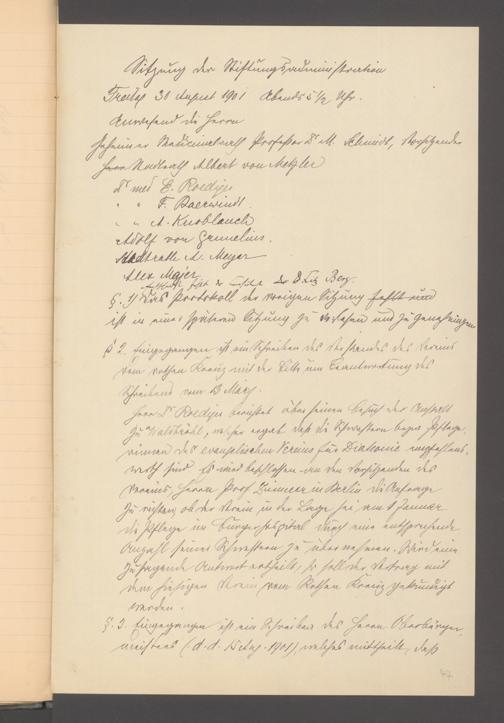 Sitzung der Stiftungsadministration
Freitag 30 August 1901 Abends 5 1/2 Uhr.
Anwesend die Herrn
Geheimer Medicinalrath Professor Dr M. Schmidt, Vorsitzender
Herr Stadtrath Albert von Metzler
Dr med E. Roediger
" " F. Baerwindt
" " A. Knoblauch
Adolf von Grunelius.
Stadtrath A. Meyer
Alex Majer
§. 1) Das Protokoll der vorigen Sitzung fehlt und
ist in einer späteren Sitzung zu verlesen und zu genehmigen
§ 2. Eingegangen ist ein Schreiben des Vorstandes des Vereins
vom rothen Kreuz mit der Bitte um Beantwortung des
Schreibens vom März.
Herr Dr Roediger berichtet über seinen Besuch der Anstalt
zu, welcher ergab daß die Schwestern bezw. Pflege-
rinnen des evangelischen Vereins für Diakonie empfehlens-
werth sind. Es wird beschlossen an den Vorsitzenden des
Vereins Herrn Prof Zimmer in Berlin die Anfrage
zu richten, ob der Verein in der Lage sei am 1 Januar
die Pflege im Bürgerhospital durch eine entsprechende
Anzahl seiner Schwestern zu übernehmen. Wird eine
zusagende Antwort ertheilt, so soll der Vertrag mit
dem hiesigen Verein vom Rothen Kreuz gekündigt
werden.
§. 3. Eingegangen ist ein Schreiben des Herrn Oberbürger-
meisters (d. d. Aug. 1901), welches mittheilt, daß